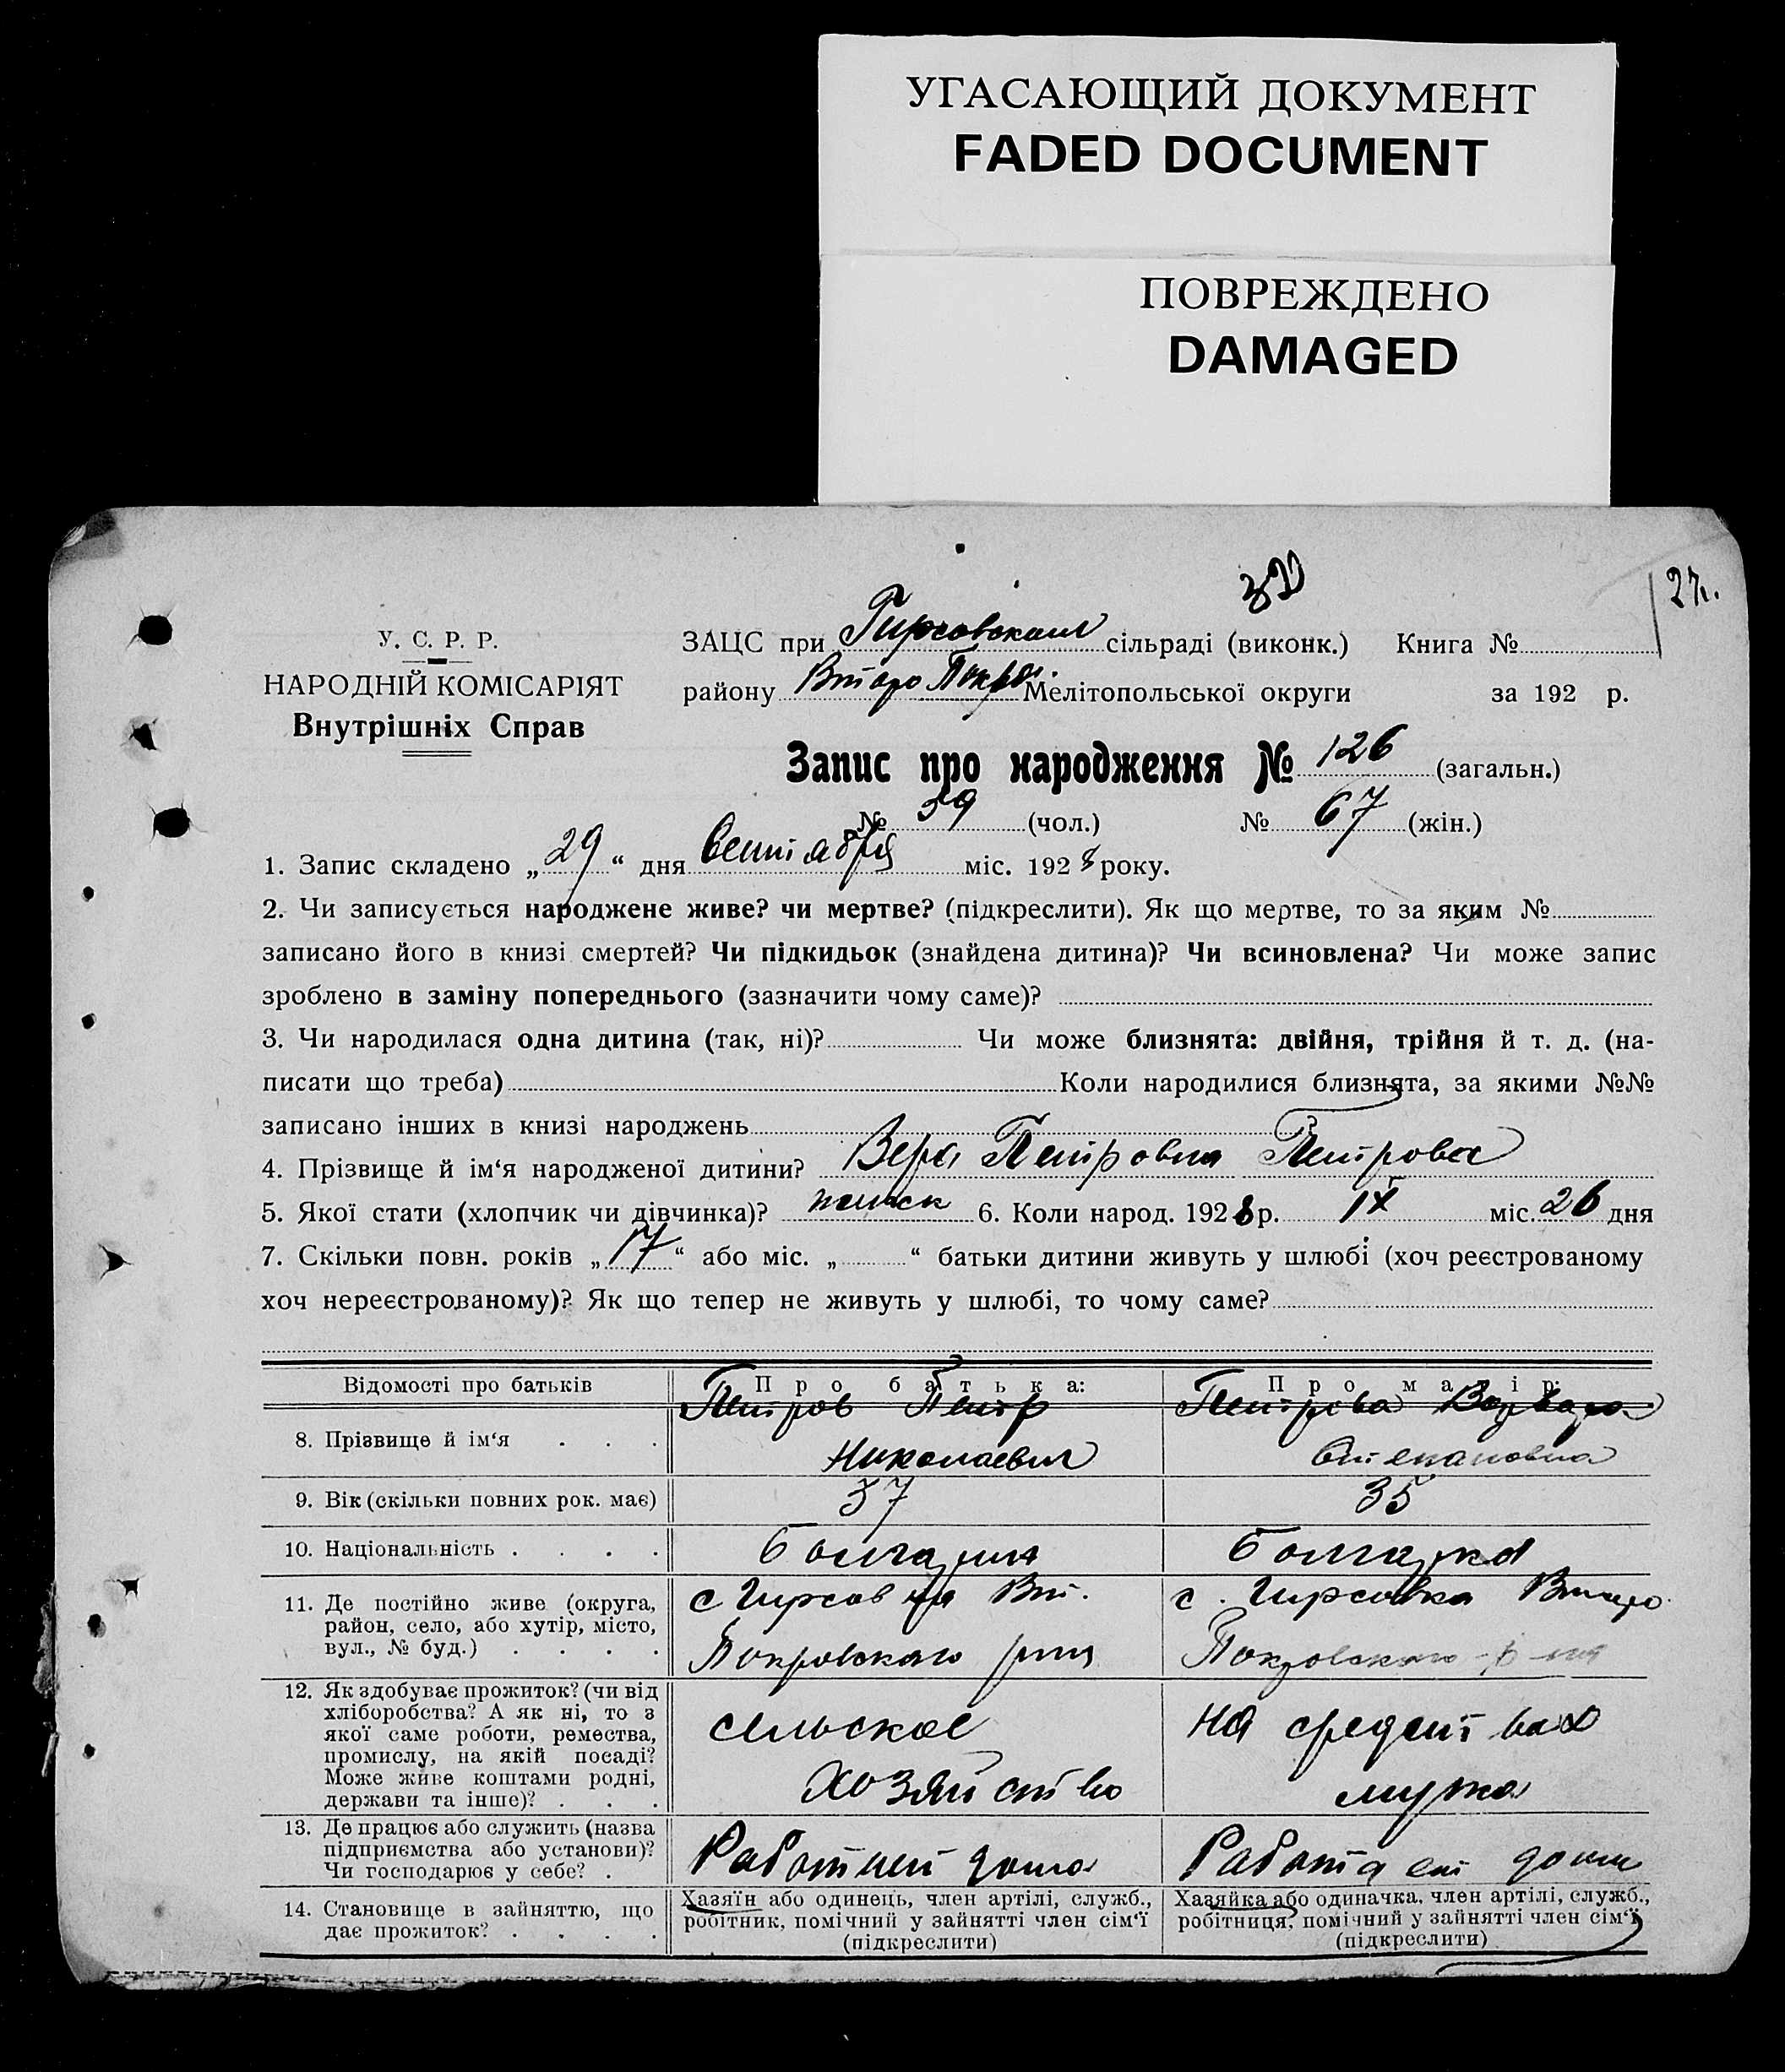 УГАСАЮЩИЙ ДОКУМЕНТ
FADED DOCUMENT
ПОВРЕЖДЕНО
DAMAGED
27.
У. С. Р. Р.
НАРОДНІЙ КОМІСАРІЯТ
Внутрішніх Справ
ЗАЦС при Гирсовским сільраді (виконк.) Книга №
району Второ Покров. Мелітопольської округи за 192 р.
Запис про народження № 126 (загальн.)
№ 59 (чол.) № 67 (жін.)
1. Запис складено „29“ дня Сентября міс. 1928 року.
2. Чи записується народжене живе? чи мертве? (підкреслити). Як що мертве, то за яким №
записано його в книзі смертей? Чи підкидьок (знайдена дитина)? Чи всиновлена? Чи може запис
зроблено в заміну попереднього (зазначити чому саме)?
3. Чи народилася одна дитина (так, ні)? Чи може близнята: двійня, трійня й т. д. (на-
писати що треба) Коли народилися близнята, за якими №№
записано інших в книзі народжень
4. Прізвище й ім‘я народженої дитини? Вера Петровна Петрова
5. Якої стати (хлопчик чи дівчинка)? женск 6. Коли народ. 1928 р. IX міс. 26 дня
7. Скільки повн. років „17“ або міс. „ “ батьки дитини живуть у шлюбі (хоч реєстрованому
хоч нереєстрованому)? Як що тепер не живуть у шлюбі, то чому саме?
Відомості про батьків Про батька: Про матір:
8. Прізвище й ім‘я . . . Петров Петр Николаевич Петрова Варвара Степановна
9. Вік (скільки повних рок. має) 37 35
10. Національність . . . . Болгарин Болгарка
11. Де постійно живе (округа,
район, село, або хутір, місто,
вул., № буд.) . . . .
с Гирсовка Вт.
Покровского рна
с. Гирсовка Второ
Покровского р-на
12. Як здобуває прожиток? (чи від
хліборобства? А як ні, то з
якої саме роботи, ремества,
промислу, на якій посаді?
Може живе коштами родні,
держави та інше)? . . .
сельское
хозяйство
на средствах
мужа
13. Де працює або служить (назва
підприємства або установи)?
Чи господарює у себе? .
Работает дома
Работает дома
14. Становище в зайняттю, що
дає прожиток? . . . .
Хазяїн або одинець, член артілі, служб.,
робітник, помічний у зайнятті член сім‘ї
(підкреслити)
Хазяйка або одиначка, член артілі, служб.,
робітниця, помічний у зайнятті член сім‘ї
(підкреслити)